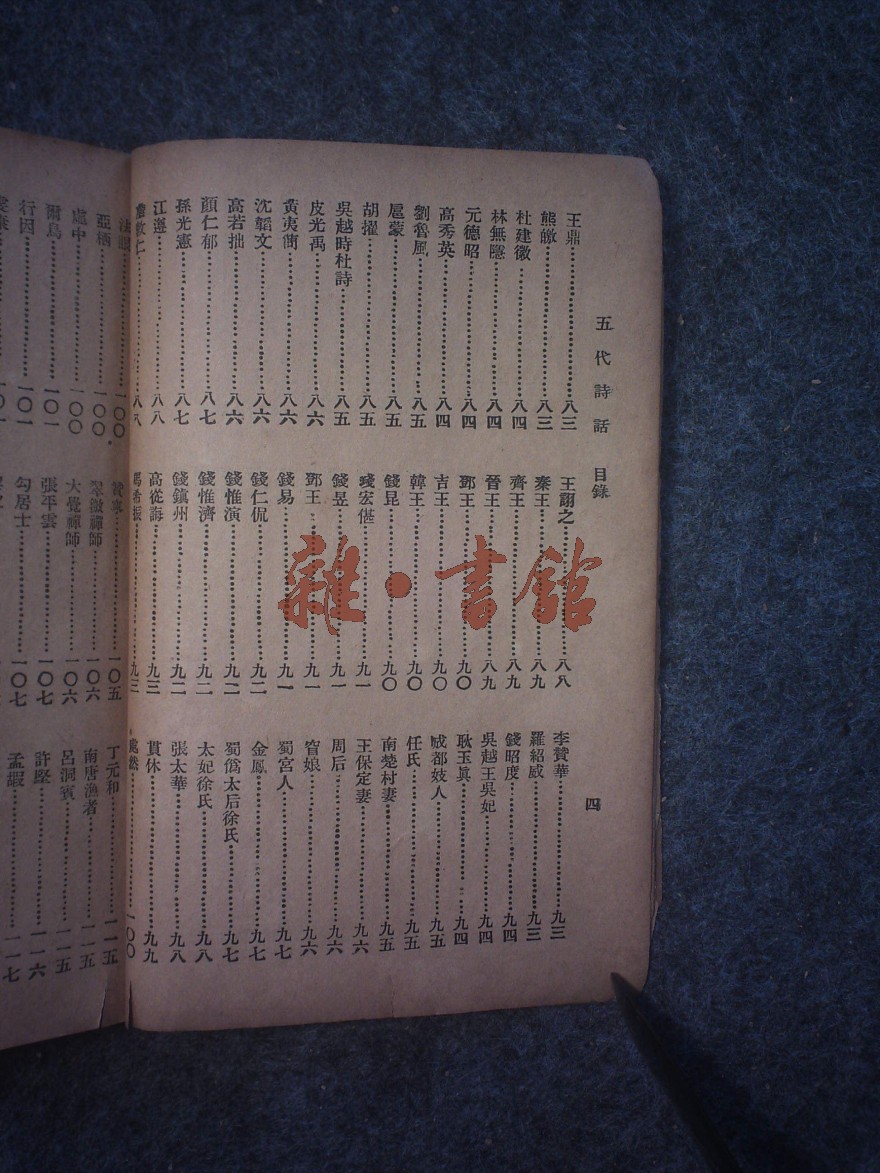 五代詩話 目錄
四
王鼎⋯⋯八三
熊皦⋯⋯八三
杜建徽⋯⋯八四
林無隱⋯⋯八四
元德昭⋯⋯八四
高秀英⋯⋯八四
劉魯風⋯⋯八五
扈蒙⋯⋯八五
胡擢⋯⋯八五
吳越時杜詩⋯⋯八五
皮光禹⋯⋯八六
黃夷簡⋯⋯八六
沈韜文⋯⋯八六
高若拙⋯⋯八六
顏仁郁⋯⋯八七
孫光憲⋯⋯八七
江遜⋯⋯八八
⋯⋯八八
王翃之⋯⋯八八
秦王⋯⋯八九
齊王⋯⋯八九
晉王⋯⋯八九
鄧王⋯⋯九〇
吉王⋯⋯九〇
韓王⋯⋯九〇
錢昆⋯⋯九〇
錢昱⋯⋯九一
鄧王⋯⋯九一
錢易⋯⋯九一
錢仁侃⋯⋯九二
錢惟演⋯⋯九二
錢惟濟⋯⋯九二
錢鎮州⋯⋯九二
高從誨⋯⋯九三
馬希振⋯⋯九三
李贊華⋯⋯九三
羅紹威⋯⋯九三
錢昭度⋯⋯九四
吳越王吳妃⋯⋯九四
耿玉真⋯⋯九四
成都妓人⋯⋯九五
任氏⋯⋯九五
南楚村妻⋯⋯九五
王保定妻⋯⋯九六
周后⋯⋯九六
窅娘⋯⋯九六
蜀宮人⋯⋯九七
金鳳⋯⋯九七
蜀僞太后徐氏⋯⋯九七
太妃徐氏⋯⋯九八
張太華⋯⋯九八
貫休⋯⋯九九
處然⋯⋯一〇〇
⋯⋯一〇〇
亞栖⋯⋯一〇〇
處中⋯⋯一〇〇
爾鳥⋯⋯一〇一
行因⋯⋯一〇一
贊寧⋯⋯一〇五
翠微禪師⋯⋯一〇六
大覺禪師⋯⋯一〇六
張平雲⋯⋯一〇七
勾居士⋯⋯一〇七
丁元和⋯⋯一一五
南唐漁者⋯⋯一一五
呂洞賓⋯⋯一一五
許堅⋯⋯一一六
孟嘏⋯⋯一一七
雜·書館